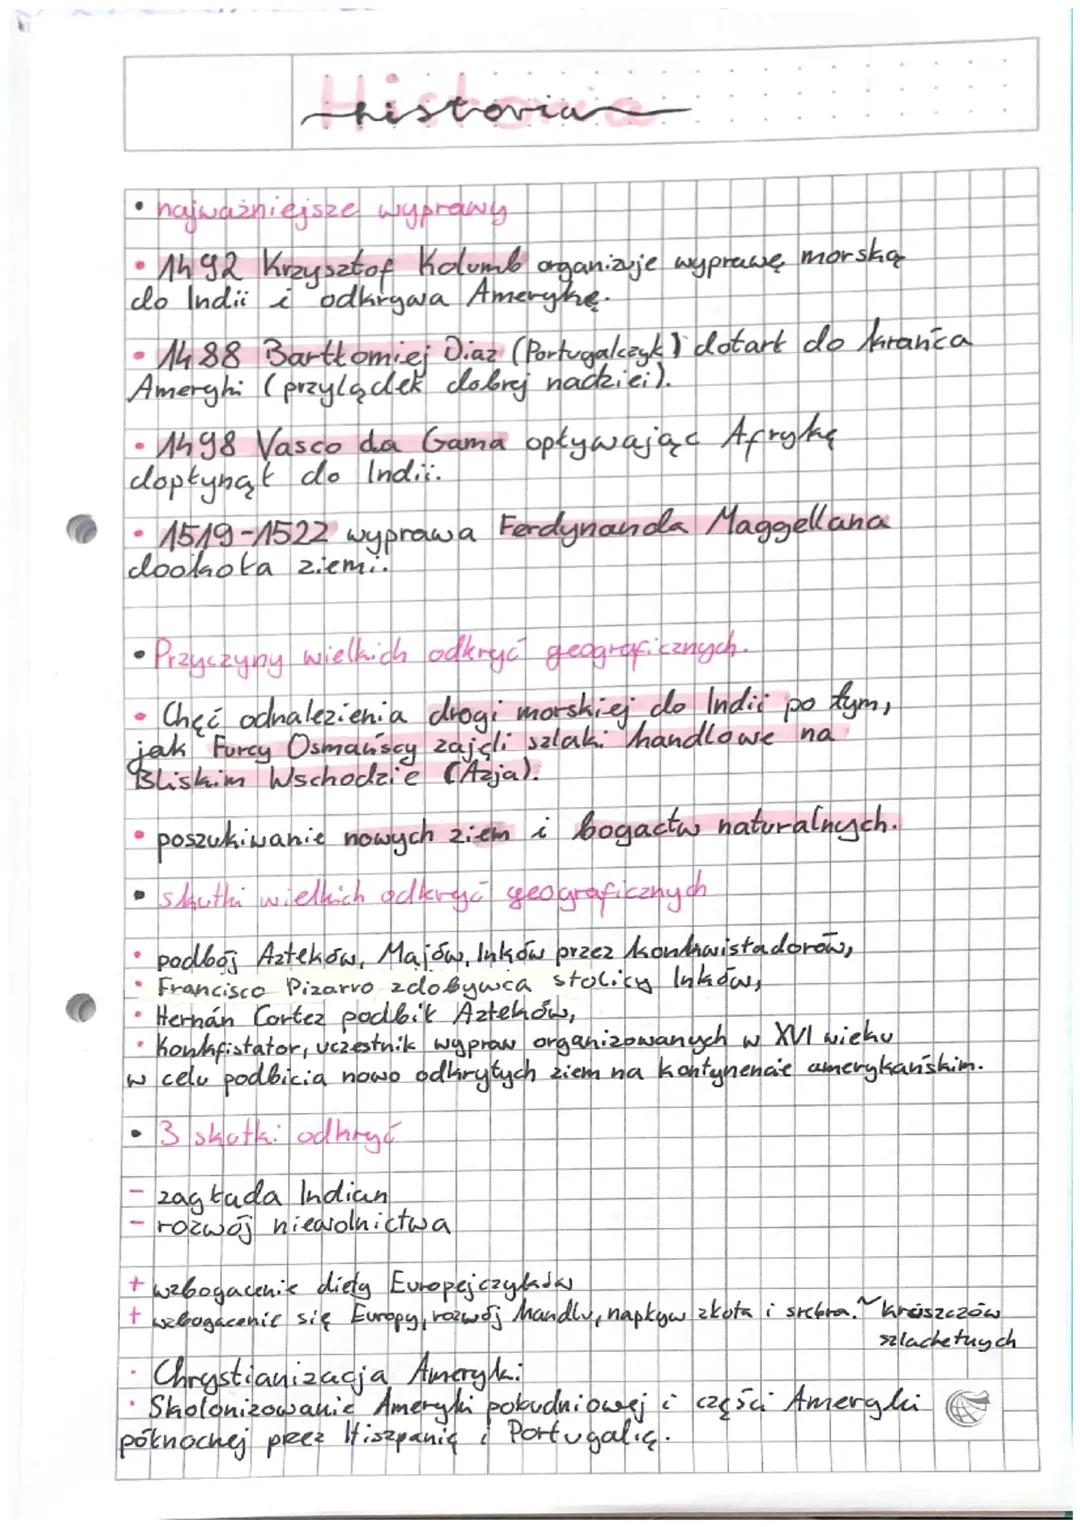 Historia
historia
• najważniejsze wyprawy
• 1492 Krzysztof Kolumb organizuje wyprawę morską
do Indii i odkrywa Amerykę.
• 1488 Bartłomiej Diaz (Portugalczyk) dotarł do krańca
Ameryki (przylądek dobrej nadziei).
• 1498 Vasco da Gama opływając Afrykę
dopłynął do Indii.
• 1519-1522 wyprawa Ferdynanda Maggellana
dookoła ziemi.
• Przyczyny wielkich odkryć geograficznych.
• Chęć odnalezienia drogi morskiej do Indii po tym,
jak Turcy Osmańscy zajęli szlaki handlowe na
Bliskim Wschodzie (Azja).
• poszukiwanie nowych ziem i bogactw naturalnych.
• skutki wielkich odkryć geograficznych
• podbój Azteków, Majów, Inków przez konkwistadorów,
• Francisco Pizarro zdobywca stolicy Inków,
• Hernán Cortez podbił Azteków,
• Konkfistator, uczestnik wypraw organizowanych w XVI wieku
w celu podbicia nowo odkrytych ziem na kontynencie amerykańskim.
• 3 skutki odkryć
- zagłada Indian
- rozwój niewolnictwa
+ wzbogacenie diety Europejczyków
+ wzbogacenie się Europy, rozwój handlu, napływ złota i srebra. ~ kruszców
szlachetnych
• Chrystianizacja Ameryki
• Skolonizowanie Ameryki południowej i części Ameryki
północnej przez Hiszpanię i Portugalię.